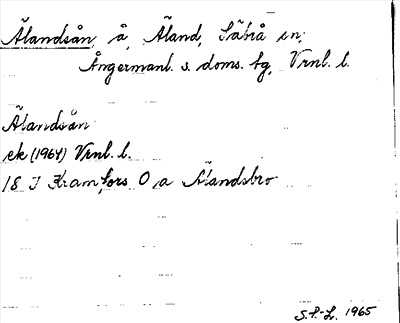 Älandsån, å, Äland, Säbrå sn;
Ångermanl. s. doms. tg, Vrnl. l.
Älandsån
ek (1964) Vrnl. l.
18 J Kramfors O, a Älandsbro
S.P.-L. 1965